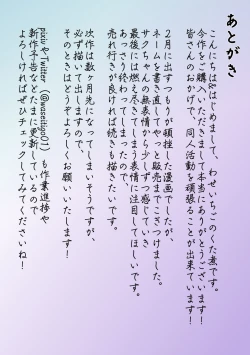 あとがき
こんにちは&はじめまして、わせいちごのくた煮です。
今作をご購入いただきまして本当にありがとうございます!
皆さんのおかげで、同人活動を頑張ることが出来ています!
2月に出すつもりが頓挫した漫画でしたが、
ネームを書き直してやっと販売までこぎつけました。
サクちゃんの無表情から少しずつ感じていき
最後には燃え尽きてしまう表情に注目してほしいです。
あっさり終わってしまったので、
売れ行きが良ければ続きも描きたいです。
次作は数ヶ月先になってしまいそうですが、
必ず描いて出しますので、
そのときはどうぞよろしくお願いいたします!
pixivやTwitter
も作業進捗や
新作予告などたまに更新しているので
よろしければぜひチェックしてみてくださいね!